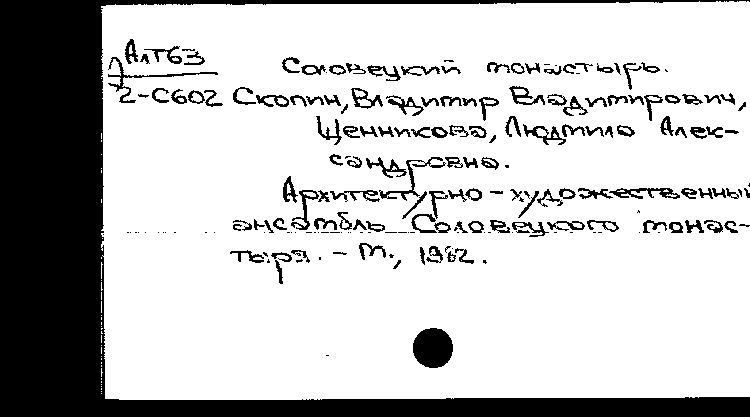 АлТ63
Соловецкий монастырь.
2-С602 Скопин, Владимир Владимирович,
Щенникова, Людмила Алек-
сандровна.
Архитектурно-художественный
ансамбль Соловецкого монас-
тыря. - М., 1982.